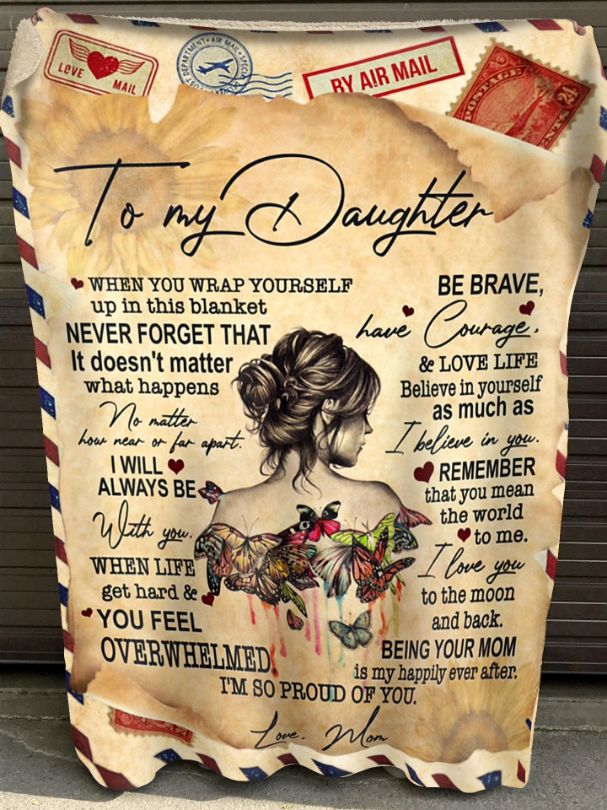 LOVE
MAIL
DEPARTMENT • AIR MAIL • SPECIAL
BY AIR MAIL
POSTAGE 24
To my Daughter
WHEN YOU WRAP YOURSELF
up in this blanket
NEVER FORGET THAT
It doesn't matter
what happens
No matter
how near or far apart.
I WILL
ALWAYS BE
With you.
WHEN LIFE
get hard &
YOU FEEL
OVERWHELMED
BE BRAVE,
have Courage,
& LOVE LIFE
Believe in yourself
as much as
I believe in you.
REMEMBER
that you mean
the world
to me.
I love you
to the moon
and back.
BEING YOUR MOM
is my happily ever after.
I'M SO PROUD OF YOU.
Love, Mom